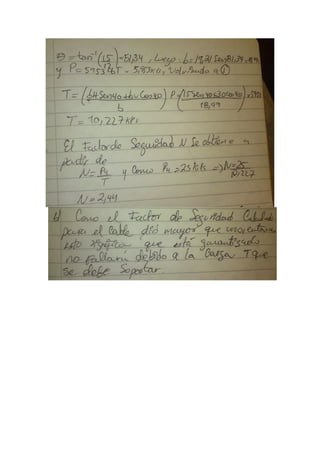 Θ = tan⁻¹(15/12) = 51,34, Luego: b = 19,21 Sen 81,34 = 18,99
y P = 5953 lbf = 5,953 kip, Volviendo a ①
T = (bH Sen40 + bv Cos40 / b) P = (15 sen40 + 12 cos40 / 18,99) × 5,953
T = 10,227 kPi
El Factor de Seguridad N Se obtiene a
partir de
N = Pu/T y Como Pu = 25 kips => N = 25/10,227
N = 2,44
b) Como el Factor de Seguridad Calculado
para el Cable dió mayor que uno, entonces
esto significa que está garantizado
no fallará debido a la Carga T que
se debe Soportar.